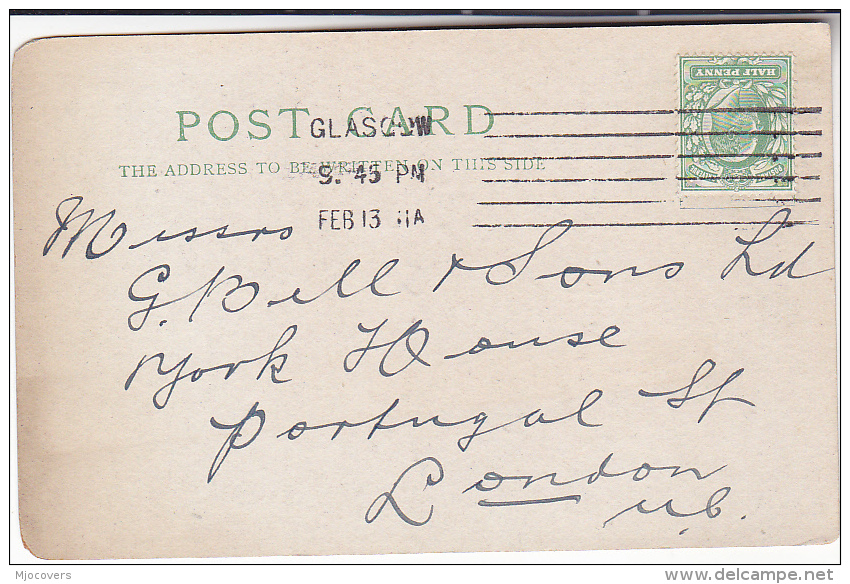 POST CARD
THE ADDRESS TO BE WRITTEN ON THIS SIDE
GLASGOW
9. 45 PM
FEB 13 11A
HALF PENNY
Messrs
G. Bell & Sons Ld
York House
Portugal St
London
W.C.
Mjocovers
delcampe.net